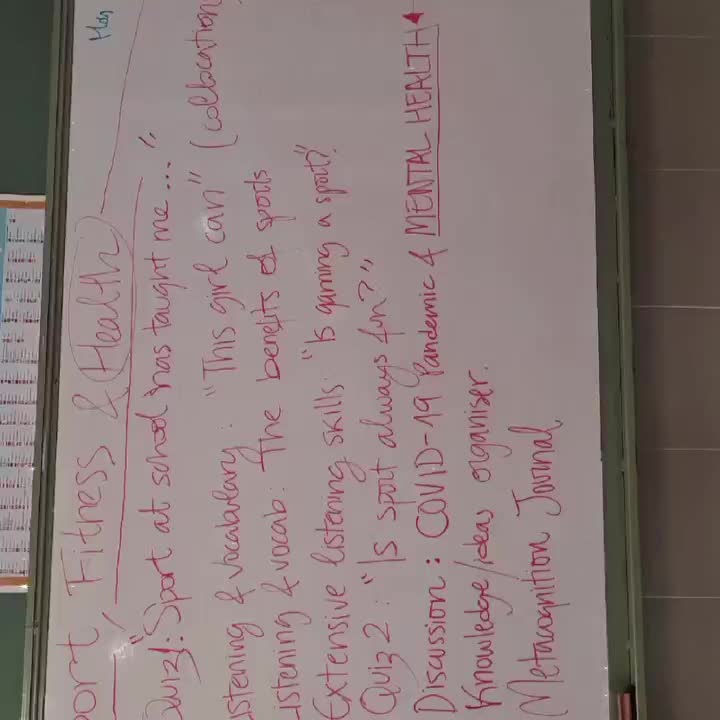 port, Fitness & Health
Quiz 1: "Sport at school has taught me..."
istening & vocabulary: "This girl can" (collocation
istening & vocab: The benefits of sports
Extensive listening skills: "Is gaming a sport?"
Quiz 2: "Is sport always fun?"
Discussion: COVID-19 Pandemic & MENTAL HEALTH
Knowledge/ideas organiser.
Metacognition Journal